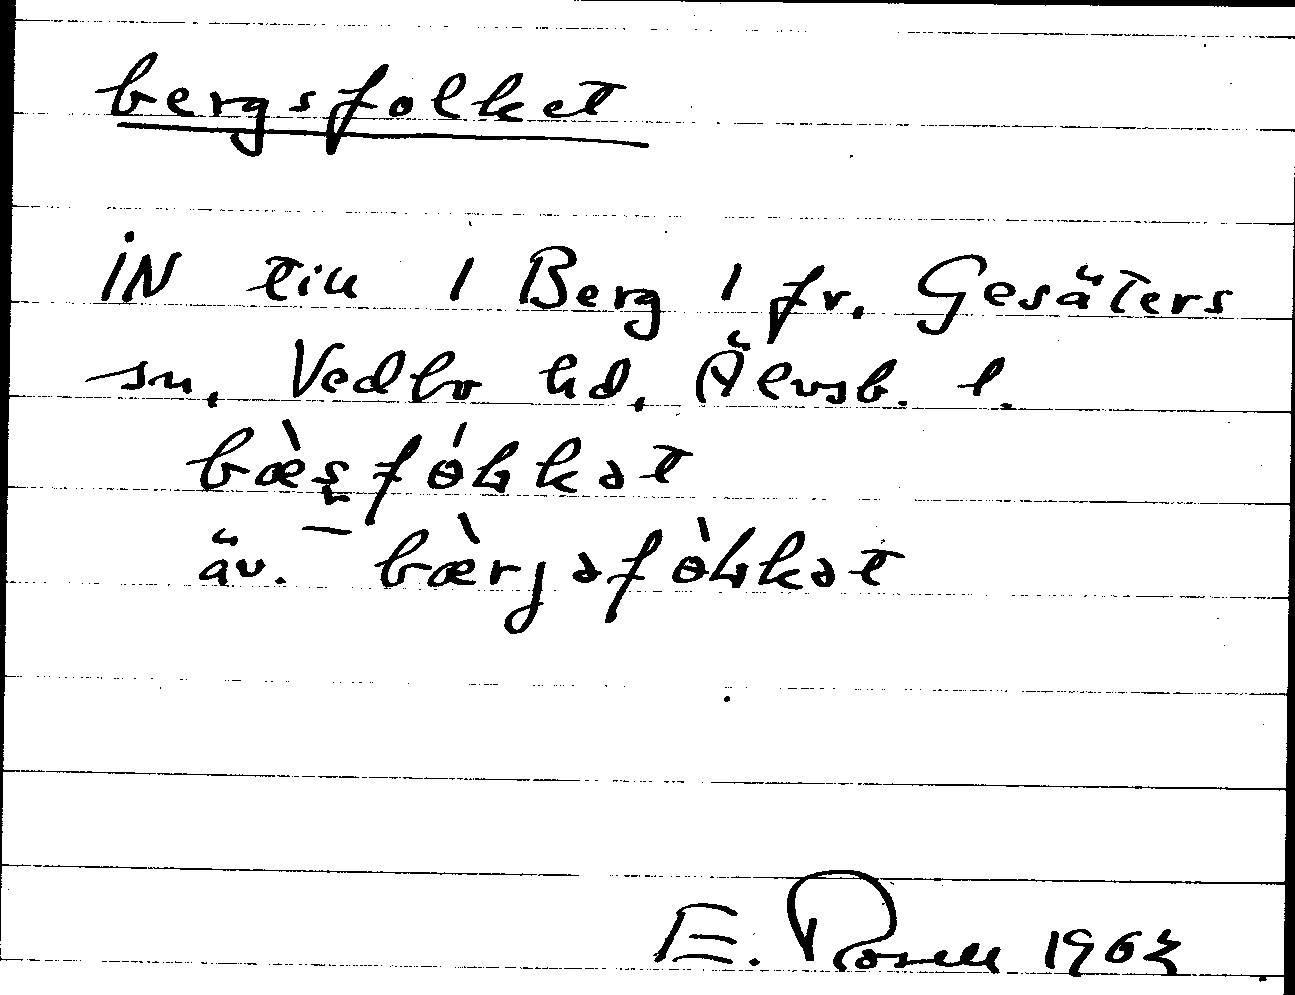 bergsfolket
IN till 1 Berg 1 fr. Gesäters
sn, Vedbo hd, Älvsb. l.
bæ̀ʂfɵ́ɽkət
äv. bæ̀rjəfɵ̀ɽkət
E. Rosell 1963